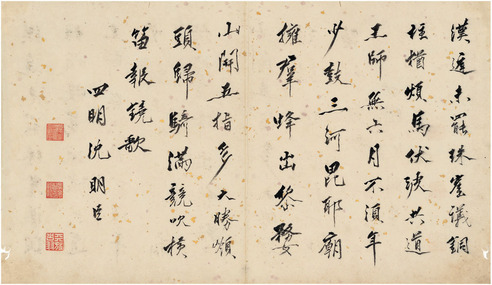 漢廷未罷珠崖議銅
柱猶煩馬伏波共道
王師無六月不須年
少鼓三河毘耶廟
擁羣峰出黎婺
山開五指多大勝嶺
頭歸騎滿競吹橫
笛報鐃歌
四明沈明臣